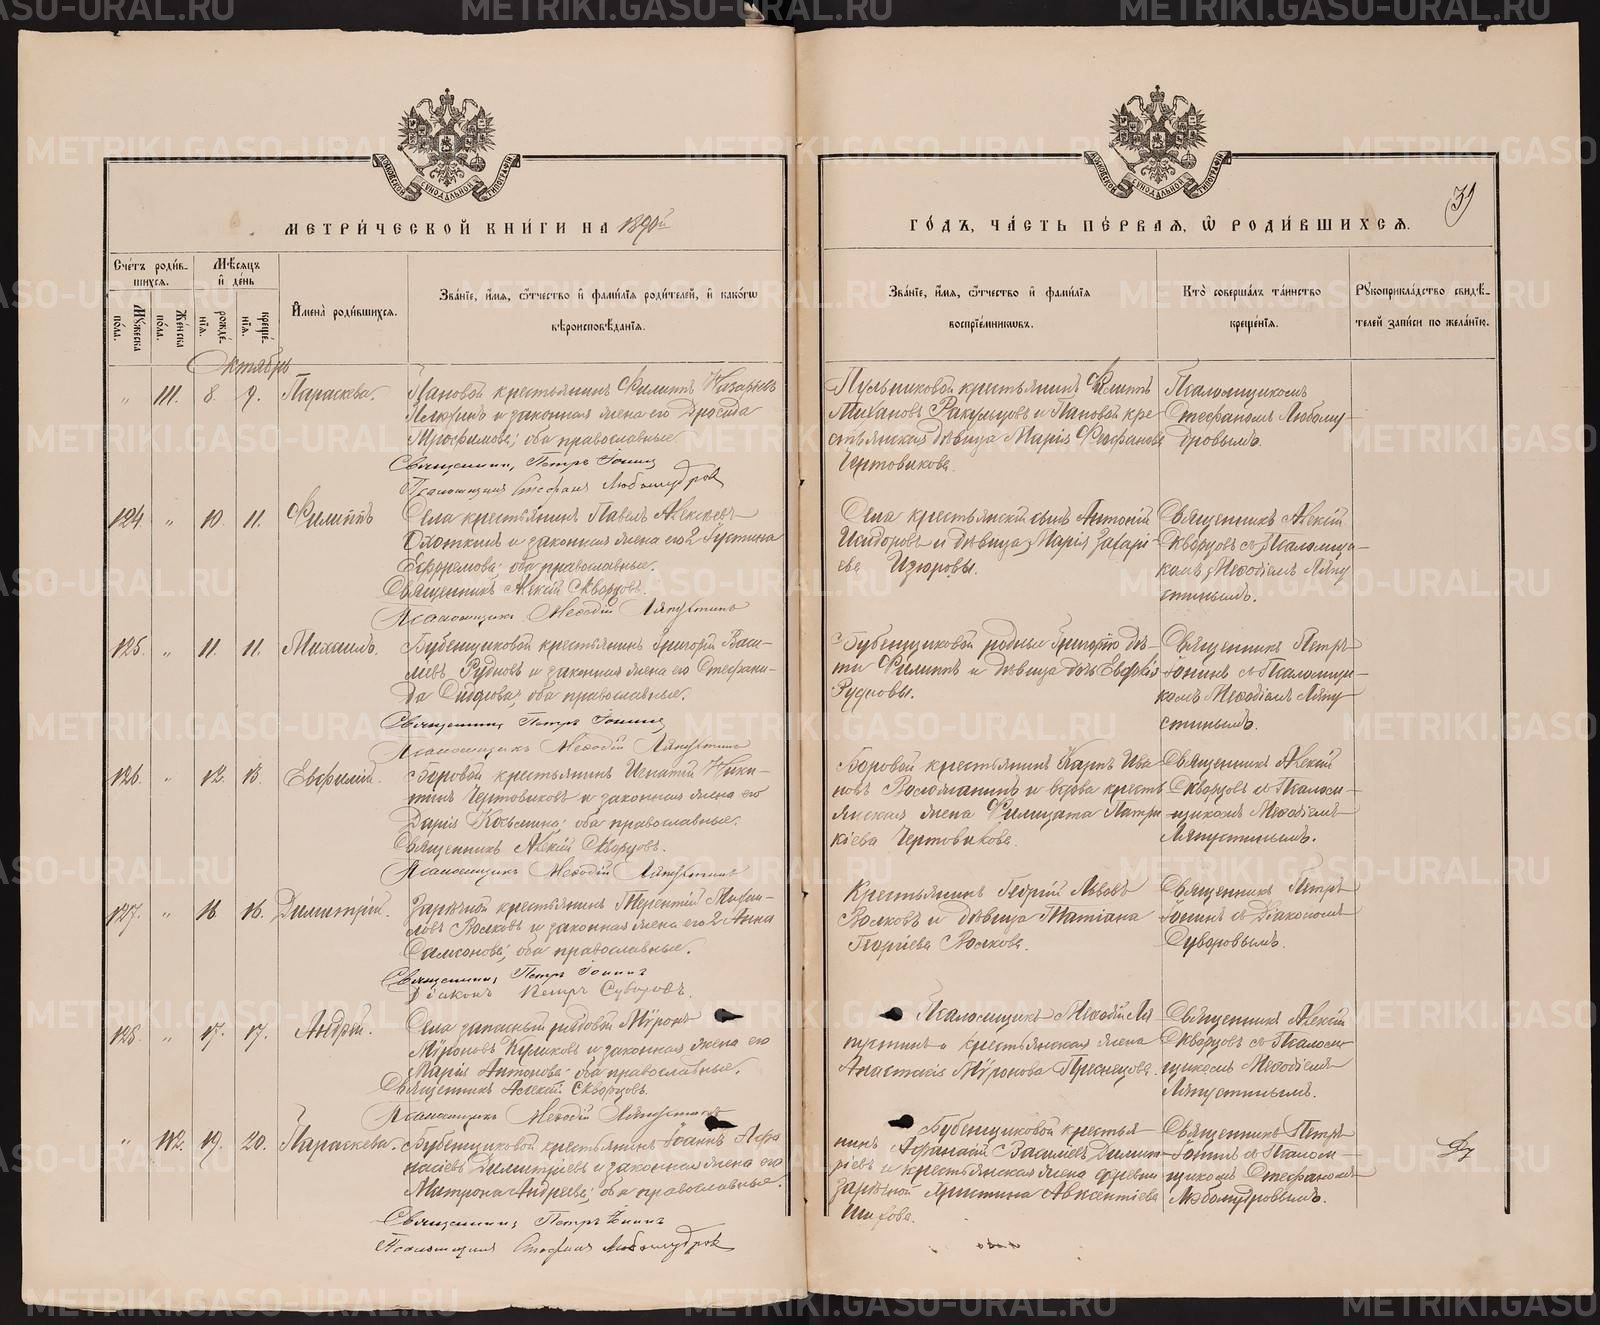 МЕТРИ́ЧЕСКОЙ КНИ́ГИ НА 1890й
ГО́ДЪ, ЧА́СТЬ ПЕ́РВАЯ, Ѿ РОДИ́ВШИХСЯ.
31
Сче́тъ роди́в-
шихся.
Мѣ́сяцъ
и҆ де́нь
Му́жеска
по́ла.
Же́нска
по́ла.
рожде́-
нїя.
креще́-
нїя.
И҆мена̀ роди́вшихся.
Зва́нїе, и҆́мя, ѻ҆́тчество и҆ фами́лїя роди́телей, и҆ како́гѡ
вѣроисповѣ́данїя.
Зва́нїе, и҆́мя, ѻ҆́тчество и҆ фами́лїя
воспрїе́мниковъ.
Кто̀ соверша́лъ та́инство
креще́нїя.
Рꙋкоприкла́дство свидѣ́-
телей за́писи по жела́нїю.
Октябрь
" 111. 8. 9. Параскева.
Пановой крестьянинъ Филиппъ Назарьевъ
и законная жена его
оба православные.
Священникъ Петръ Іонинъ
Псаломщикъ Стефанъ Любомудров
Пульниковой крестьянинъ Филиппъ
и Пановой кре-
стьянская дѣвица Марія
Чертовикова.
Псаломщикомъ
Стефаномъ Любому-
дровымъ.
124 " 10. 11. Филиппъ
Села крестьянинъ Павелъ Алексѣевъ
Охоткинъ и законная жена его 2 Іустина
Ефремова; оба православные.
Священникъ Алексій Скворцовъ.
Псаломщикъ Меѳодій Ляпустинъ
Села крестьянскій сынъ Антоній
Исидоровъ и дѣвица Марія Захарі-
ева Изюровы.
Священникъ Алексій
Скворцовъ съ Псаломщи-
комъ Меѳодіемъ Ляпу
стинымъ.
125. " 11. 11. Михаилъ.
Бубенщиковой крестьянинъ Григорій Васи-
льевъ Рудновъ и законная жена его Стефани-
да оба православные.
Священникъ Петръ Іонинъ
Псаломщикъ Меѳодій Ляпустинъ
Бубенщиковой родные Григорію дѣ-
ти Филиппъ и дѣвица
Рудновы.
Священникъ Петръ
Іонинъ съ Псаломщи-
комъ Меѳодіемъ Ляпу
стинымъ.
126. " 12. 13. Евфимій.
Боровой крестьянинъ Игнатій Ники-
тинъ Чертовиковъ и законная жена его
Дарія Козьмина; оба православные.
Священникъ Алексій Скворцовъ.
Псаломщикъ Меѳодій Ляпустинъ
Боровой крестьянинъ Карпъ Ива-
новъ и вдова кресть
янская жена Филицата Патри-
кіева Чертовикова.
Священникъ Алексій
Скворцовъ съ Псалом-
щикомъ Меѳодіемъ
Ляпустинымъ.
127. " 16 16. Димитрій.
Зарѣчной крестьянинъ Терентій
Восковъ и законная жена его 2 Анна
оба православные.
Священникъ Петръ Іонинъ
Діаконъ Петръ Суворовъ.
Крестьянинъ Георгій Львовъ
Восковъ и дѣвица Татіана
Георгіева Воскова.
Священникъ Петръ
Іонинъ съ Діакономъ
Суворовымъ.
128. " 17. 17. Андрей.
Села запасный рядовой Мѵронъ
Мѵроновъ Куликовъ и законная жена его
Марія Антонова; оба православные.
Священникъ Алексій Скворцовъ.
Псаломщикъ Меѳодій Ляпустинъ
Псаломщикъ Меѳодій Ля
пустинъ и крестьянская жена
Анастасія Мѵронова Преснецова.
Священникъ Алексій
Скворцовъ съ Псалом
щикомъ Меѳодіемъ
Ляпустинымъ.
" 112. 19. 20. Параскева.
Бубенщиковой крестьянинъ Іоаннъ Афа
насіевъ Димитріевъ и законная жена его
Матрона Андреева; оба православные.
Священникъ Петръ Іонинъ
Псаломщикъ Стефанъ Любомудров
Бубенщиковой крестья-
нинъ Афанасій Василіевъ Димит-
ріевъ и крестьянская жена деревни
Зарѣчной Христина Авксентіева
Священникъ Петръ
Іонинъ съ Псалом-
щикомъ Стефаномъ
Любомудровымъ.
METRIKI.GASO-URAL.RU